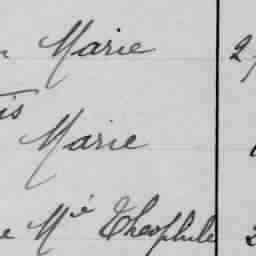 Marie
is
Marie
e Mié Théophile